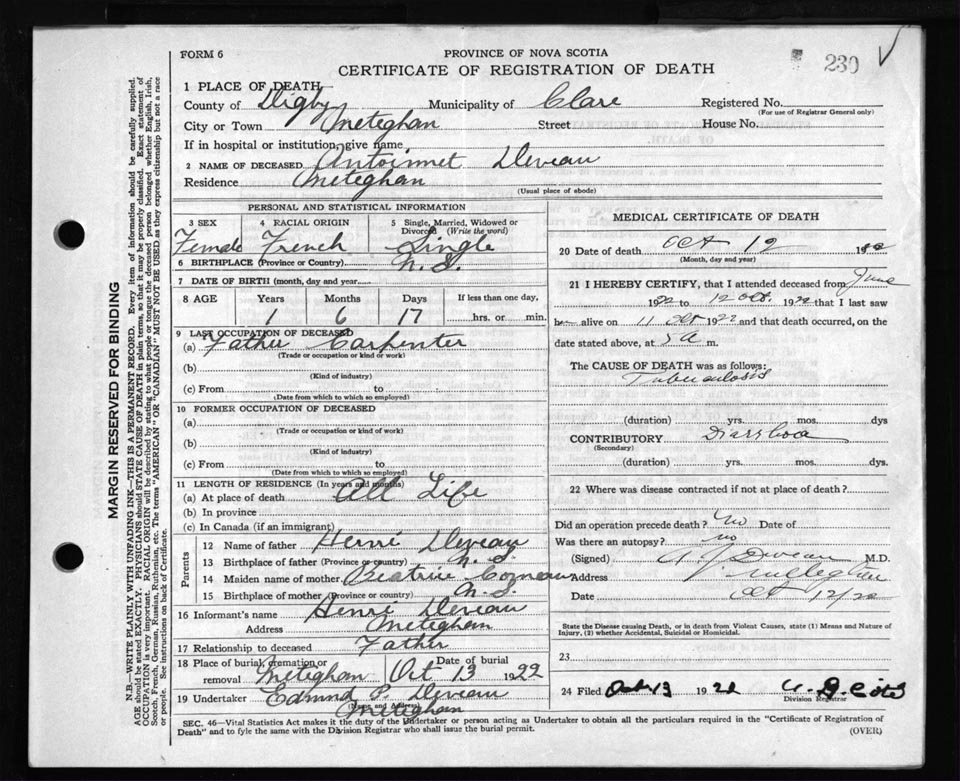 FORM 6
PROVINCE OF NOVA SCOTIA
CERTIFICATE OF REGISTRATION OF DEATH
230
1 PLACE OF DEATH
County of Digby Municipality of Clare Registered No.
(For use of Registrar General only)
City or Town Meteghan Street House No.
If in hospital or institution, give name
2 NAME OF DECEASED Antoinnet Deveau
Residence Meteghan
(Usual place of abode)
PERSONAL AND STATISTICAL INFORMATION
3 SEX 4 RACIAL ORIGIN 5 Single, Married, Widowed or Divorced (Write the word)
Female French Single
6 BIRTHPLACE (Province or Country) N.S.
7 DATE OF BIRTH (month, day and year)
8 AGE Years Months Days If less than one day,
1 6 17 hrs. or min.
9 LAST OCCUPATION OF DECEASED
(a) Father Carpenter
(Trade or occupation or kind of work)
(b)
(Kind of industry)
(c) From to
(Date from which to which so employed)
10 FORMER OCCUPATION OF DECEASED
(a)
(Trade or occupation or kind of work)
(b)
(Kind of industry)
(c) From to
(Date from which to which so employed)
11 LENGTH OF RESIDENCE (In years and months)
(a) At place of death All Life
(b) In province
(c) In Canada (if an immigrant)
Parents
12 Name of father Henri Deveau
13 Birthplace of father (Province or country) N.S.
14 Maiden name of mother Beatrice Comeau
15 Birthplace of mother (Province or country) N.S.
16 Informant's name Henri Deveau
Address Meteghan
17 Relationship to deceased Father
18 Place of burial, cremation or removal Meteghan Date of burial Oct 13 1922
19 Undertaker Edmund P. Deveau
(Name and Address)
Meteghan
MEDICAL CERTIFICATE OF DEATH
20 Date of death Oct 12 1922
(Month, day and year)
21 I HEREBY CERTIFY, that I attended deceased from June
1922 to 12 Oct. 1922 that I last saw
h alive on 11 Oct 1922 and that death occurred, on the
date stated above, at 5 A m.
The CAUSE OF DEATH was as follows:
Tuberculosis
(duration) yrs. mos. dys
CONTRIBUTORY Diarrhoea
(Secondary)
(duration) yrs. mos. dys.
22 Where was disease contracted if not at place of death?
Did an operation precede death? No Date of
Was there an autopsy? no
(Signed) Deveau M.D.
Address
Date Oct 12/22
State the Disease causing Death, or in death from Violent Causes, state (1) Means and Nature of
Injury, (2) whether Accidental, Suicidal or Homicidal.
23
24 Filed Oct 13 1922
Division Registrar
SEC. 46—Vital Statistics Act makes it the duty of the Undertaker or person acting as Undertaker to obtain all the particulars required in the "Certificate of Registration of
Death" and to fyle the same with the Division Registrar who shall issue the burial permit.
(OVER)
MARGIN RESERVED FOR BINDING
N.B.—WRITE PLAINLY WITH UNFADING INK—THIS IS A PERMANENT RECORD. Every item of information should be carefully supplied.
AGE should be stated EXACTLY. PHYSICIANS should STATE CAUSE OF DEATH in plain terms, so that it may be properly classified. Exact statement of
OCCUPATION is very important. RACIAL ORIGIN will be described by stating to what people or tongue the deceased person belonged whether English, Irish,
Scotch, French, German, Russian, Ruthenian, etc. The terms "AMERICAN" OR "CANADIAN" MUST NOT BE USED as they express citizenship but not a race
or people. See instructions on back of Certificate.